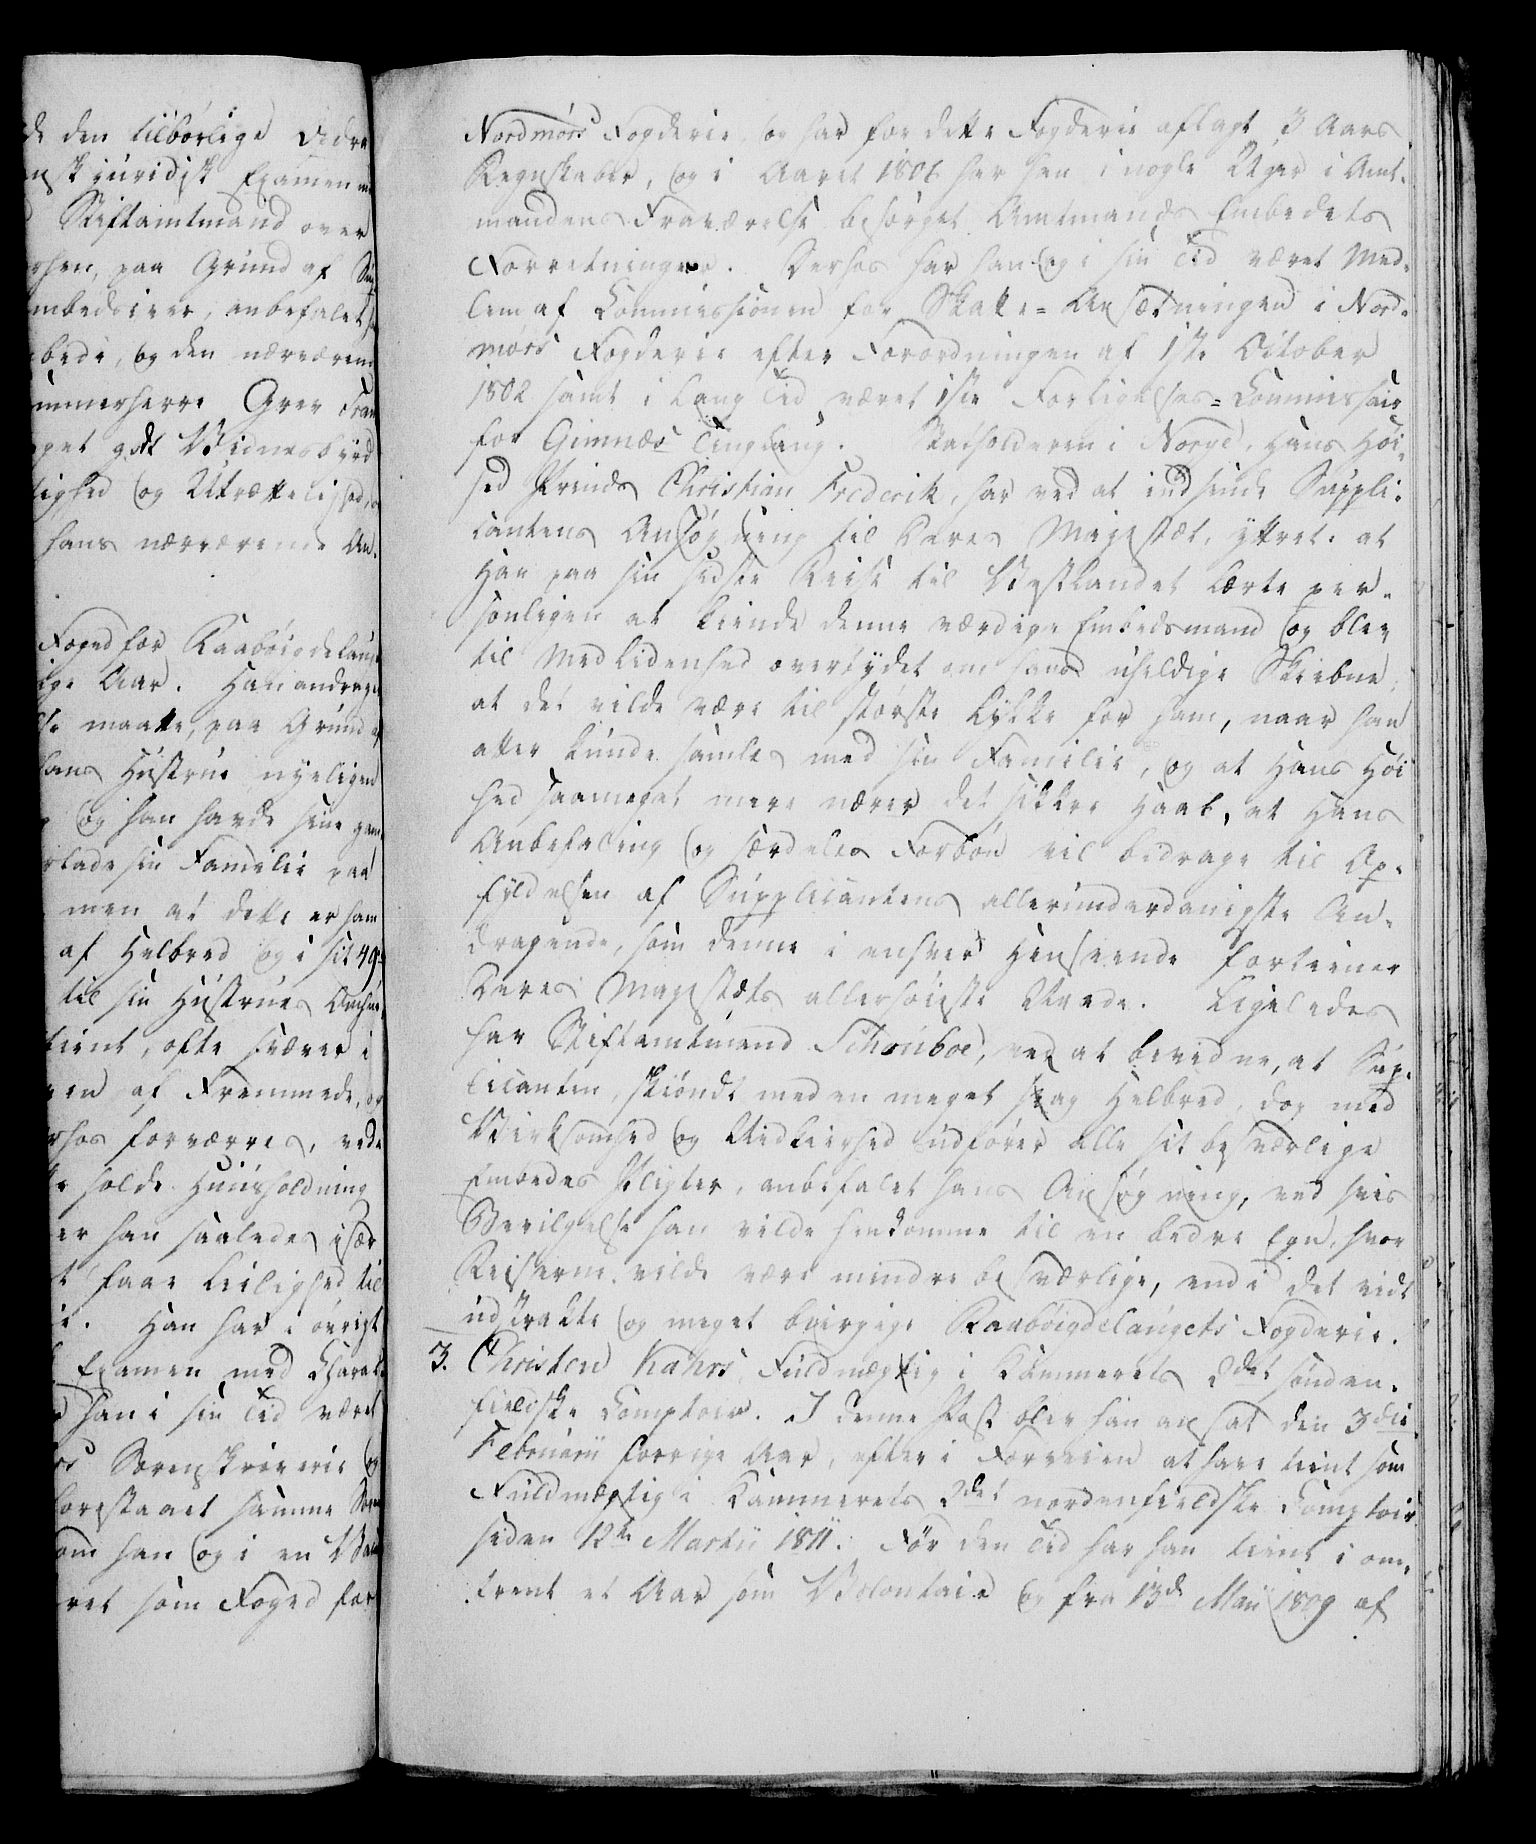 de den tilbørlige Vidre
nsk juridisk Examen
Stiftamtmand over
paa Grund af
mbedsiver, anbefalet
bede, og den nærværende
ammerherre Grev
get godt Vidnesbyrd
lighed og Utrættelighed,
hans nærværende An-
Foged for Raabøigdelaug
ige Aar. Han andrager
maatte, paa Grund af
hans Hustrue nyeligen
og han havde sine
lade sin Familie paa
men at dette er ham
af Helbred og i sit 49
til sin Hustrues
tient, ofte svæver i
en af Fremmede,
forværres, ved
holde Huusholdning
er han saaledes især
faae Leilighed til
Han har i øvrigt
Examen med Charak
han i sin Tid været
Sorenskriverie og
forestaaet samme
om han og i en
ret som Foged for
Nordmørs Fogderie, og har for dette Fogderie aflagt 3 Aars
Regnskaber, og i Aaret 1806 har han i nogle Uger i Amt-
mandens Fraværelse besørget Amtmands Embedets
Forretninger. Derhos har han og i sin Tid været Med-
lem af Commissionen for Skatte=Ansætningen i Nord-
mørs Fogderie efter Forordningen af 1ste October
1802 samt i lang Tid været 1ste Forligelses=Commissair
for Gimnæs Tinglaug. Statholderen i Norge, Hans Høi-
hed Prinds Christian Frederik, har ved at indsende Suppli-
cantens Ansøgning til Deres Majestæt, yttret: at
Han paa sin sidste Reise til Vestlandet lærte per-
sonligen at kiende denne værdige Embedsmand og blev
til Medlidenhed overtydet om hans uheldige Skiebne,
at det vilde være til største Lykke for ham, naar han
atter kunde samles med sin Familie, og at Hans Høi
hed saameget mere nærer det sikkre Haab, at Hans
Anbefaling og særdeles Forbøn vil bidrage til Op-
fyldelsen af Supplicantens allerunderdanigste An-
dragende, som denne i enhver Henseende fortiener
Deres Majestæts allerhøieste Naade. Ligeledes
har Stiftamtmand Schouboe, ved at bevidne, at Sup-
licanten, skiøndt med en meget svag Helbred, dog med
Virksomhed og Nidkierhed udfører alle sit besværlige
Embedes Pligter, anbefalet hans Ansøgning, ved hvis
Bevilgelse han vilde henkomme til en bedre Egn, hvor
Reiserne vilde være mindre besværlige, end i det vidt
udstrakte og meget biergige Raabøigdelaugets Fogderie.
3. Christen Kahrs Fuldmægtig i Kammerets 2det sønden-
fieldske Comptoir. I denne Post blev han ansat den 3die
Februarii forrige Aar, efter i Forveien at have tient som
Fuldmægtig i Kammerets 2det nordenfieldske Comptoir
siden 12te Martii 1811. Før den Tid har han tient i om-
trent et Aar som Volontair og fra 13de Maii 1809 af